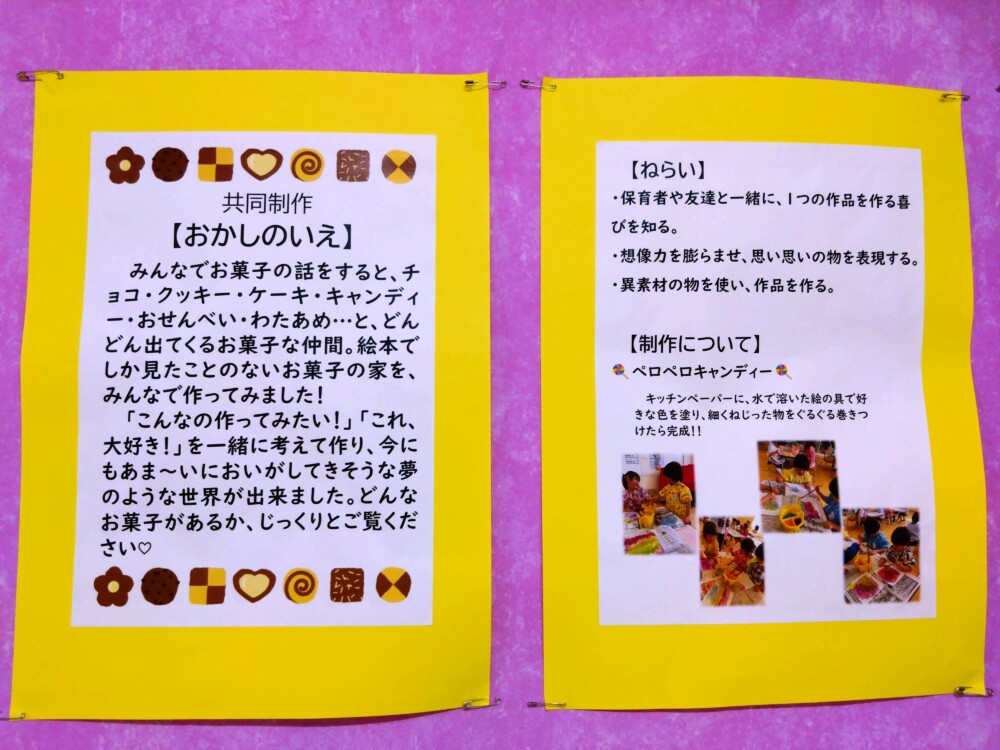 共同制作
【おかしのいえ】
みんなでお菓子の話をすると、チ
ョコ・クッキー・ケーキ・キャンディ
ー・おせんべい・わたあめ…と、どん
どん出てくるお菓子な仲間。絵本で
しか見たことのないお菓子の家を、
みんなで作ってみました！
「こんなの作ってみたい！」「これ、
大好き！」を一緒に考えて作り、今に
もあま～いにおいがしてきそうな夢
のような世界が出来ました。どんな
お菓子があるか、じっくりとご覧くだ
さい♡
【ねらい】
・保育者や友達と一緒に、1つの作品を作る喜
びを知る。
・想像力を膨らませ、思い思いの物を表現する。
・異素材の物を使い、作品を作る。
【制作について】
ペロペロキャンディー
キッチンペーパーに、水で溶いた絵の具で好
きな色を塗り、細くねじった物をぐるぐる巻きつ
けたら完成！！